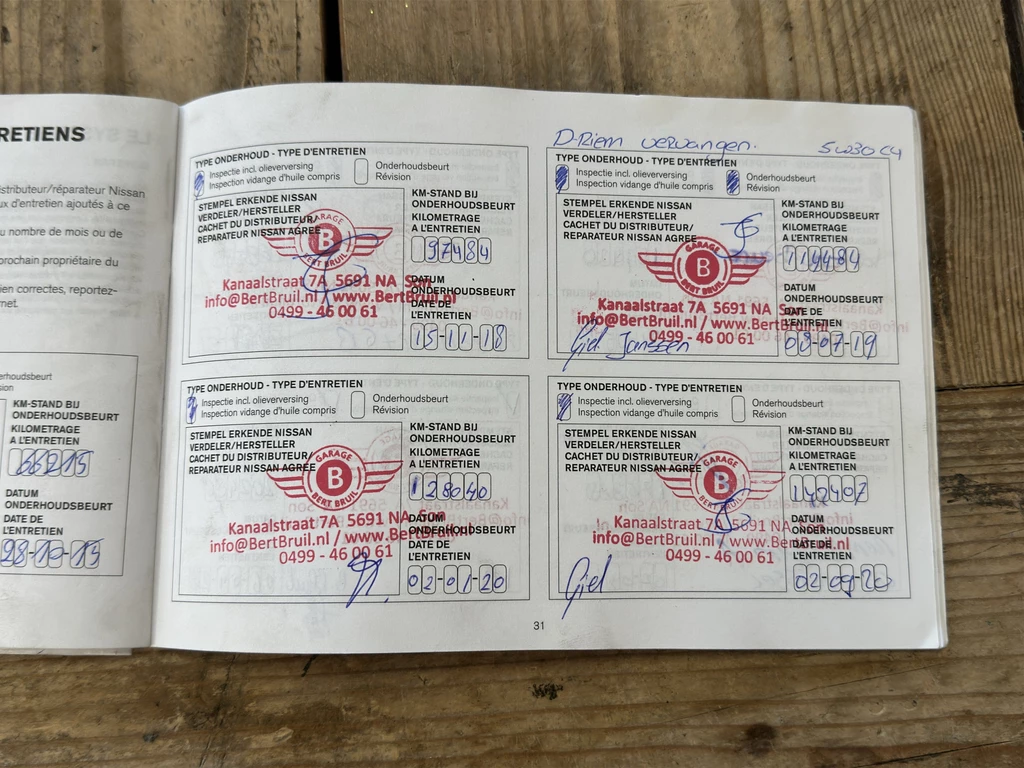 RETIENS
stributeur/réparateur Nissan
ux d'entretien ajoutés à ce
u nombre de mois ou de
prochain propriétaire du
ien correctes, reportez-
rnet.
erhoudsbeurt
sion
KM-STAND BIJ
ONDERHOUDSBEURT
KILOMETRAGE
A L'ENTRETIEN
66215
DATUM
ONDERHOUDSBEURT
DATE DE
L'ENTRETIEN
TYPE ONDERHOUD - TYPE D'ENTRETIEN
Inspectie incl. olieverversing
Inspection vidange d'huile compris
Onderhoudsbeurt
Révision
STEMPEL ERKENDE NISSAN
VERDELER/HERSTELLER
CACHET DU DISTRIBUTEUR/
REPARATEUR NISSAN AGREE
GARAGE
B
BERT BRUIL
Kanaalstraat 7A 5691 NA Son
info@BertBruil.nl / www.BertBruil.nl
0499 - 46 00 61
KM-STAND BIJ
ONDERHOUDSBEURT
KILOMETRAGE
A L'ENTRETIEN
97484
DATUM
ONDERHOUDSBEURT
DATE DE
L'ENTRETIEN
15-11-18
D-Riem vervangen. 5W30 C4
TYPE ONDERHOUD - TYPE D'ENTRETIEN
Inspectie incl. olieverversing
Inspection vidange d'huile compris
Onderhoudsbeurt
Révision
STEMPEL ERKENDE NISSAN
VERDELER/HERSTELLER
CACHET DU DISTRIBUTEUR/
REPARATEUR NISSAN AGREE
GARAGE
B
BERT BRUIL
Kanaalstraat 7A 5691 NA Son
info@BertBruil.nl / www.BertBruil.nl
0499 - 46 00 61
Giel Janssen
KM-STAND BIJ
ONDERHOUDSBEURT
KILOMETRAGE
A L'ENTRETIEN
114484
DATUM
ONDERHOUDSBEURT
DATE DE
L'ENTRETIEN
08-07-19
TYPE ONDERHOUD - TYPE D'ENTRETIEN
Inspectie incl. olieverversing
Inspection vidange d'huile compris
Onderhoudsbeurt
Révision
STEMPEL ERKENDE NISSAN
VERDELER/HERSTELLER
CACHET DU DISTRIBUTEUR/
REPARATEUR NISSAN AGREE
GARAGE
B
BERT BRUIL
Kanaalstraat 7A 5691 NA Son
info@BertBruil.nl / www.BertBruil.nl
0499 - 46 00 61
KM-STAND BIJ
ONDERHOUDSBEURT
KILOMETRAGE
A L'ENTRETIEN
128040
DATUM
ONDERHOUDSBEURT
DATE DE
L'ENTRETIEN
02-01-20
TYPE ONDERHOUD - TYPE D'ENTRETIEN
Inspectie incl. olieverversing
Inspection vidange d'huile compris
Onderhoudsbeurt
Révision
STEMPEL ERKENDE NISSAN
VERDELER/HERSTELLER
CACHET DU DISTRIBUTEUR/
REPARATEUR NISSAN AGREE
GARAGE
B
BERT BRUIL
Kanaalstraat 7A 5691 NA Son
info@BertBruil.nl / www.BertBruil.nl
0499 - 46 00 61
Giel
KM-STAND BIJ
ONDERHOUDSBEURT
KILOMETRAGE
A L'ENTRETIEN
142407
DATUM
ONDERHOUDSBEURT
DATE DE
L'ENTRETIEN
02-09-20
31